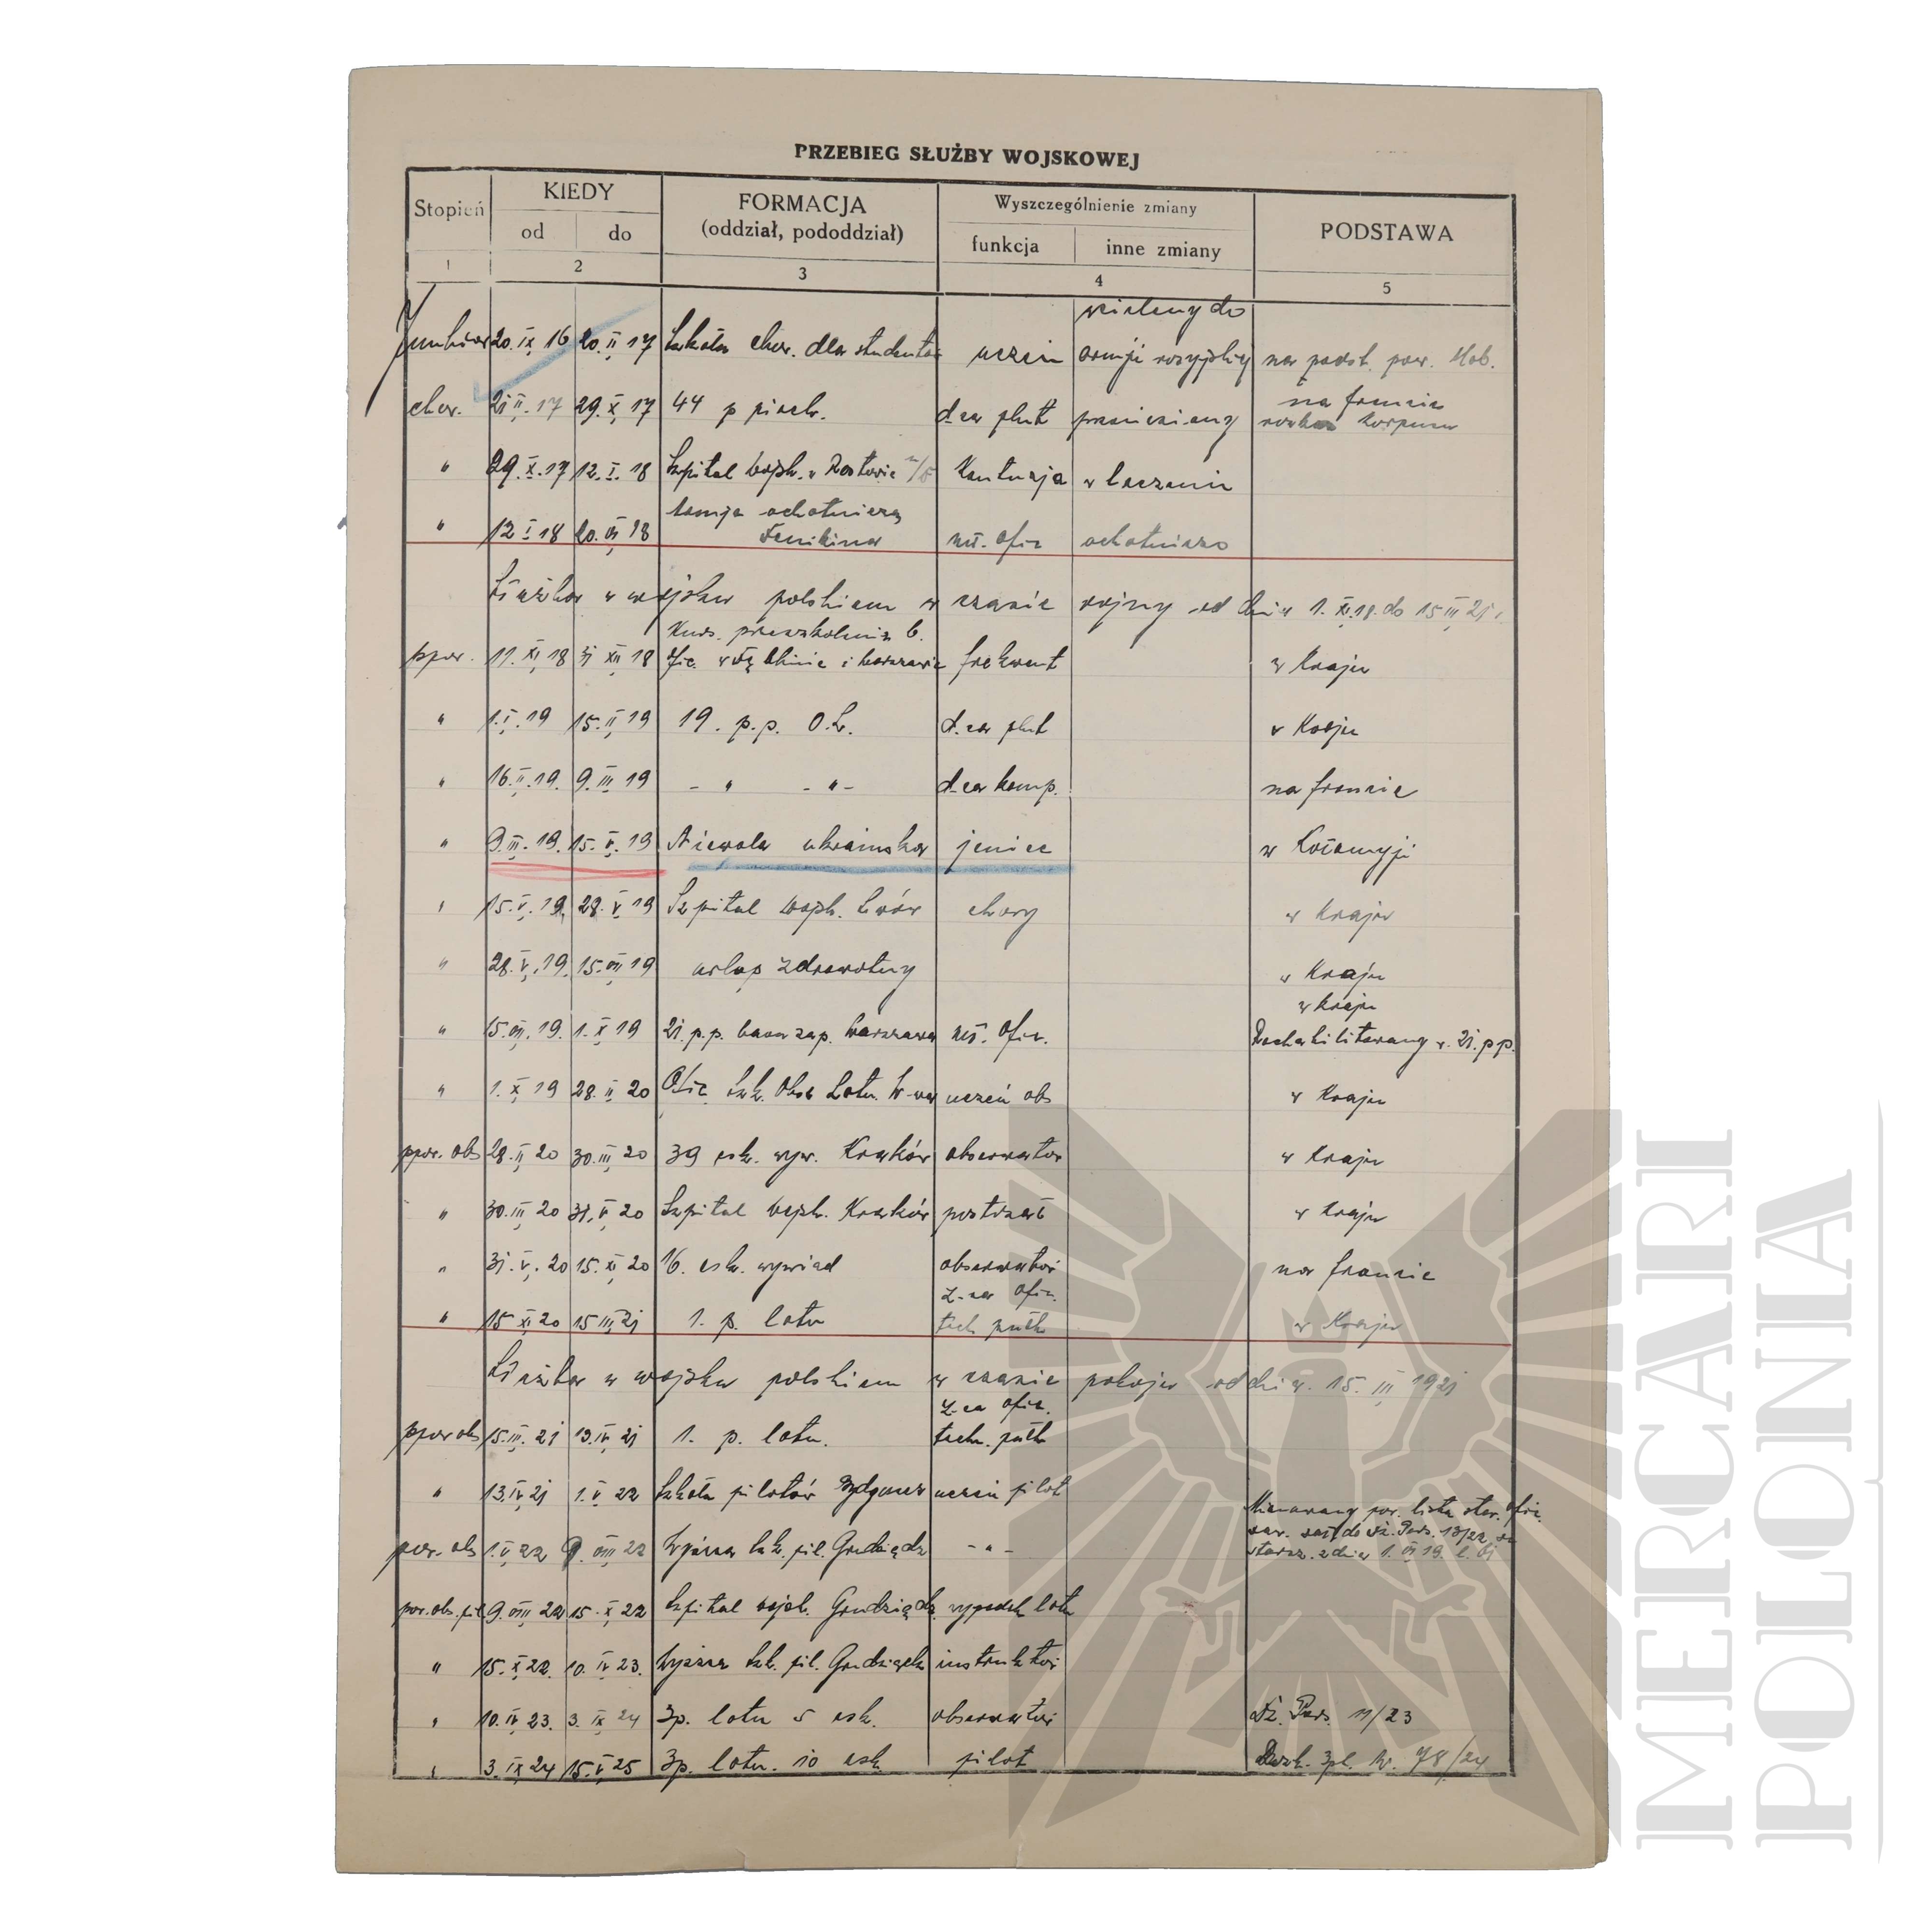 PRZEBIEG SŁUŻBY WOJSKOWEJ
Stopień KIEDY FORMACJA Wyszczególnienie zmiany PODSTAWA
od do (oddział, pododdział) funkcja inne zmiany
1 2 3 4 5
wcielony do
Junkier 20.IX.16 20.II.17 Szkoła chor. dla studentów uczeń armji rosyjskiej na podst. pow. Mob.
na froncie
chor. 21 II.17 29.X.17 44 p piech. d-ca plut przeniesiony korpusu
" 29.X.17 12.I.18 Szpital wojsk. w Rostowie n/D Kontuzja w leczeniu
armja ochotnicza
" 12 I 18 20.VI 18 Denikina mł. ofic ochotniczo
Służba w wojsku polskiem w czasie wojny od dnia 1.XI.18. do 15 III 21 r.
Kurs. przeszkolenia b.
ppor. 11.XI.18 31 XII 18 Ofic. w Dęblinie i Warszawie frekwent w kraju
" 1.I.19 15.II.19 19. p.p. O.L. d-ca plut w Kraju
" 16.II.19. 9.III 19 - " - " - d-ca komp. na froncie
" 9.III.19. 15.V.19 Niewola ukraińska jeniec w Kołomyji
" 15.V.19. 28.V 19 Szpital wojsk. Lwów chory w Kraju
" 28.V.19. 15.VII 19 urlop zdrowotny w Kraju
w kraju
" 15.VII.19. 1.X 19 21.p.p. baon zap. Warszawa mł. ofic. Rechabilitowany w 21.p.p.
" 1.X 19 28.II 20 Ofic. szk. Obs. Lotn. W-wa uczeń obs w Kraju
ppor. obs 28.II 20 30.III 20 39 esk. wyw. Kraków obserwator w kraju
" 30.III 20 31.V 20 Szpital wojsk. Kraków postrzał w kraju
" 31.V.20 15.XI 20 16. esk. wywiad obserwator na froncie
z-ca ofic.
" 15 XI 20 15 III 21 1. p. lotn tech pułk w Kraju
Służba w wojsku polskiem w czasie pokoju od dnia 15. III 1921
z-ca ofic.
ppor obs 15.III.21 13.IV 21 1. p. lotn. techn. pułk
" 13.IV 21 1.V 22 Szkoła pilotów Bydgoszcz uczeń pilot
Mianowany por. lista star. ofic.
zaw. zał. do Dz. Pers. 13/22 ze
por. obs 1.V 22 9. VIII 22 Wyższa szk. pil. Grudziądz - " - starsz. z dnia 1. VI 19.
por. obs. pil 9.VIII 22 15.X 22 Szpital wojsk. Grudziądz wypadek lotn
" 15.X 22. 10.IV 23. Wyższa szk. pil. Grudziądz instruktor
" 10.IV 23. 3.IX 24 3p. lotn 5 esk. obserwator Dz. Pers. 11/23
" 3.IX 24 15.V 25 3p. lotn. 10 esk. pilot Rozk. 3pl. Nr. 78/24
MERCARI
POLONIA